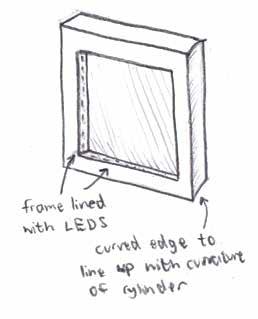 frame lined
with LEDS
curved edge to
line up with curvature
of cylinder